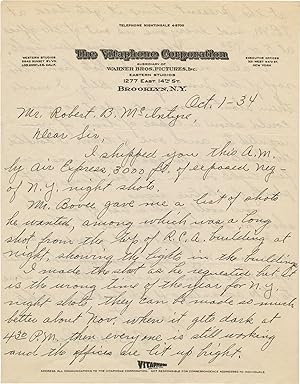 TELEPHONE NIGHTINGALE 4-8700
WESTERN STUDIOS
5842 SUNSET BLVD
LOS ANGELES, CALIF.
The Vitaphone Corporation
SUBSIDIARY OF
WARNER BROS. PICTURES, Inc.
EASTERN STUDIOS
1277 EAST 14TH ST.
BROOKLYN, N.Y.
EXECUTIVE OFFICES
321 WEST 44TH ST.
NEW YORK
Oct. 1-34
Mr. Robert B. McIntyre,
Dear Sir,
I shipped you this A.M.
by Air Express, 3000 ft. of exposed neg-
of N.Y. night shots.
Mr. Bovee gave me a list of shots
he wanted, among which was a long
shot from the top of R.C.A. building at
night, showing the lights in the buildings
I made the shot as he requested but it
is the wrong time of the year for N.Y.
night shots, they can be made so much
better about Nov. when it gets dark at
430 P.M. then everyone is still working
and the offices are lit up bright.
VITAPHONE
ADDRESS ALL COMMUNICATIONS TO THE VITAPHONE CORPORATION. NOT RESPONSIBLE FOR CORRESPONDENCE ADDRESSED TO INDIVIDUALS.